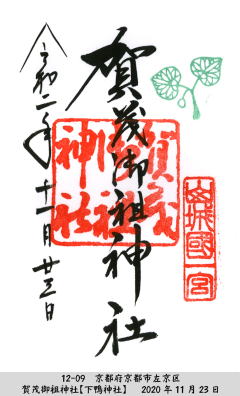 山城國一宮
賀茂御祖神社
賀茂
御祖
神社
令和二年十一月廿三日
12-09 京都府京都市左京区
賀茂御祖神社【下鴨神社】 2020年11月23日